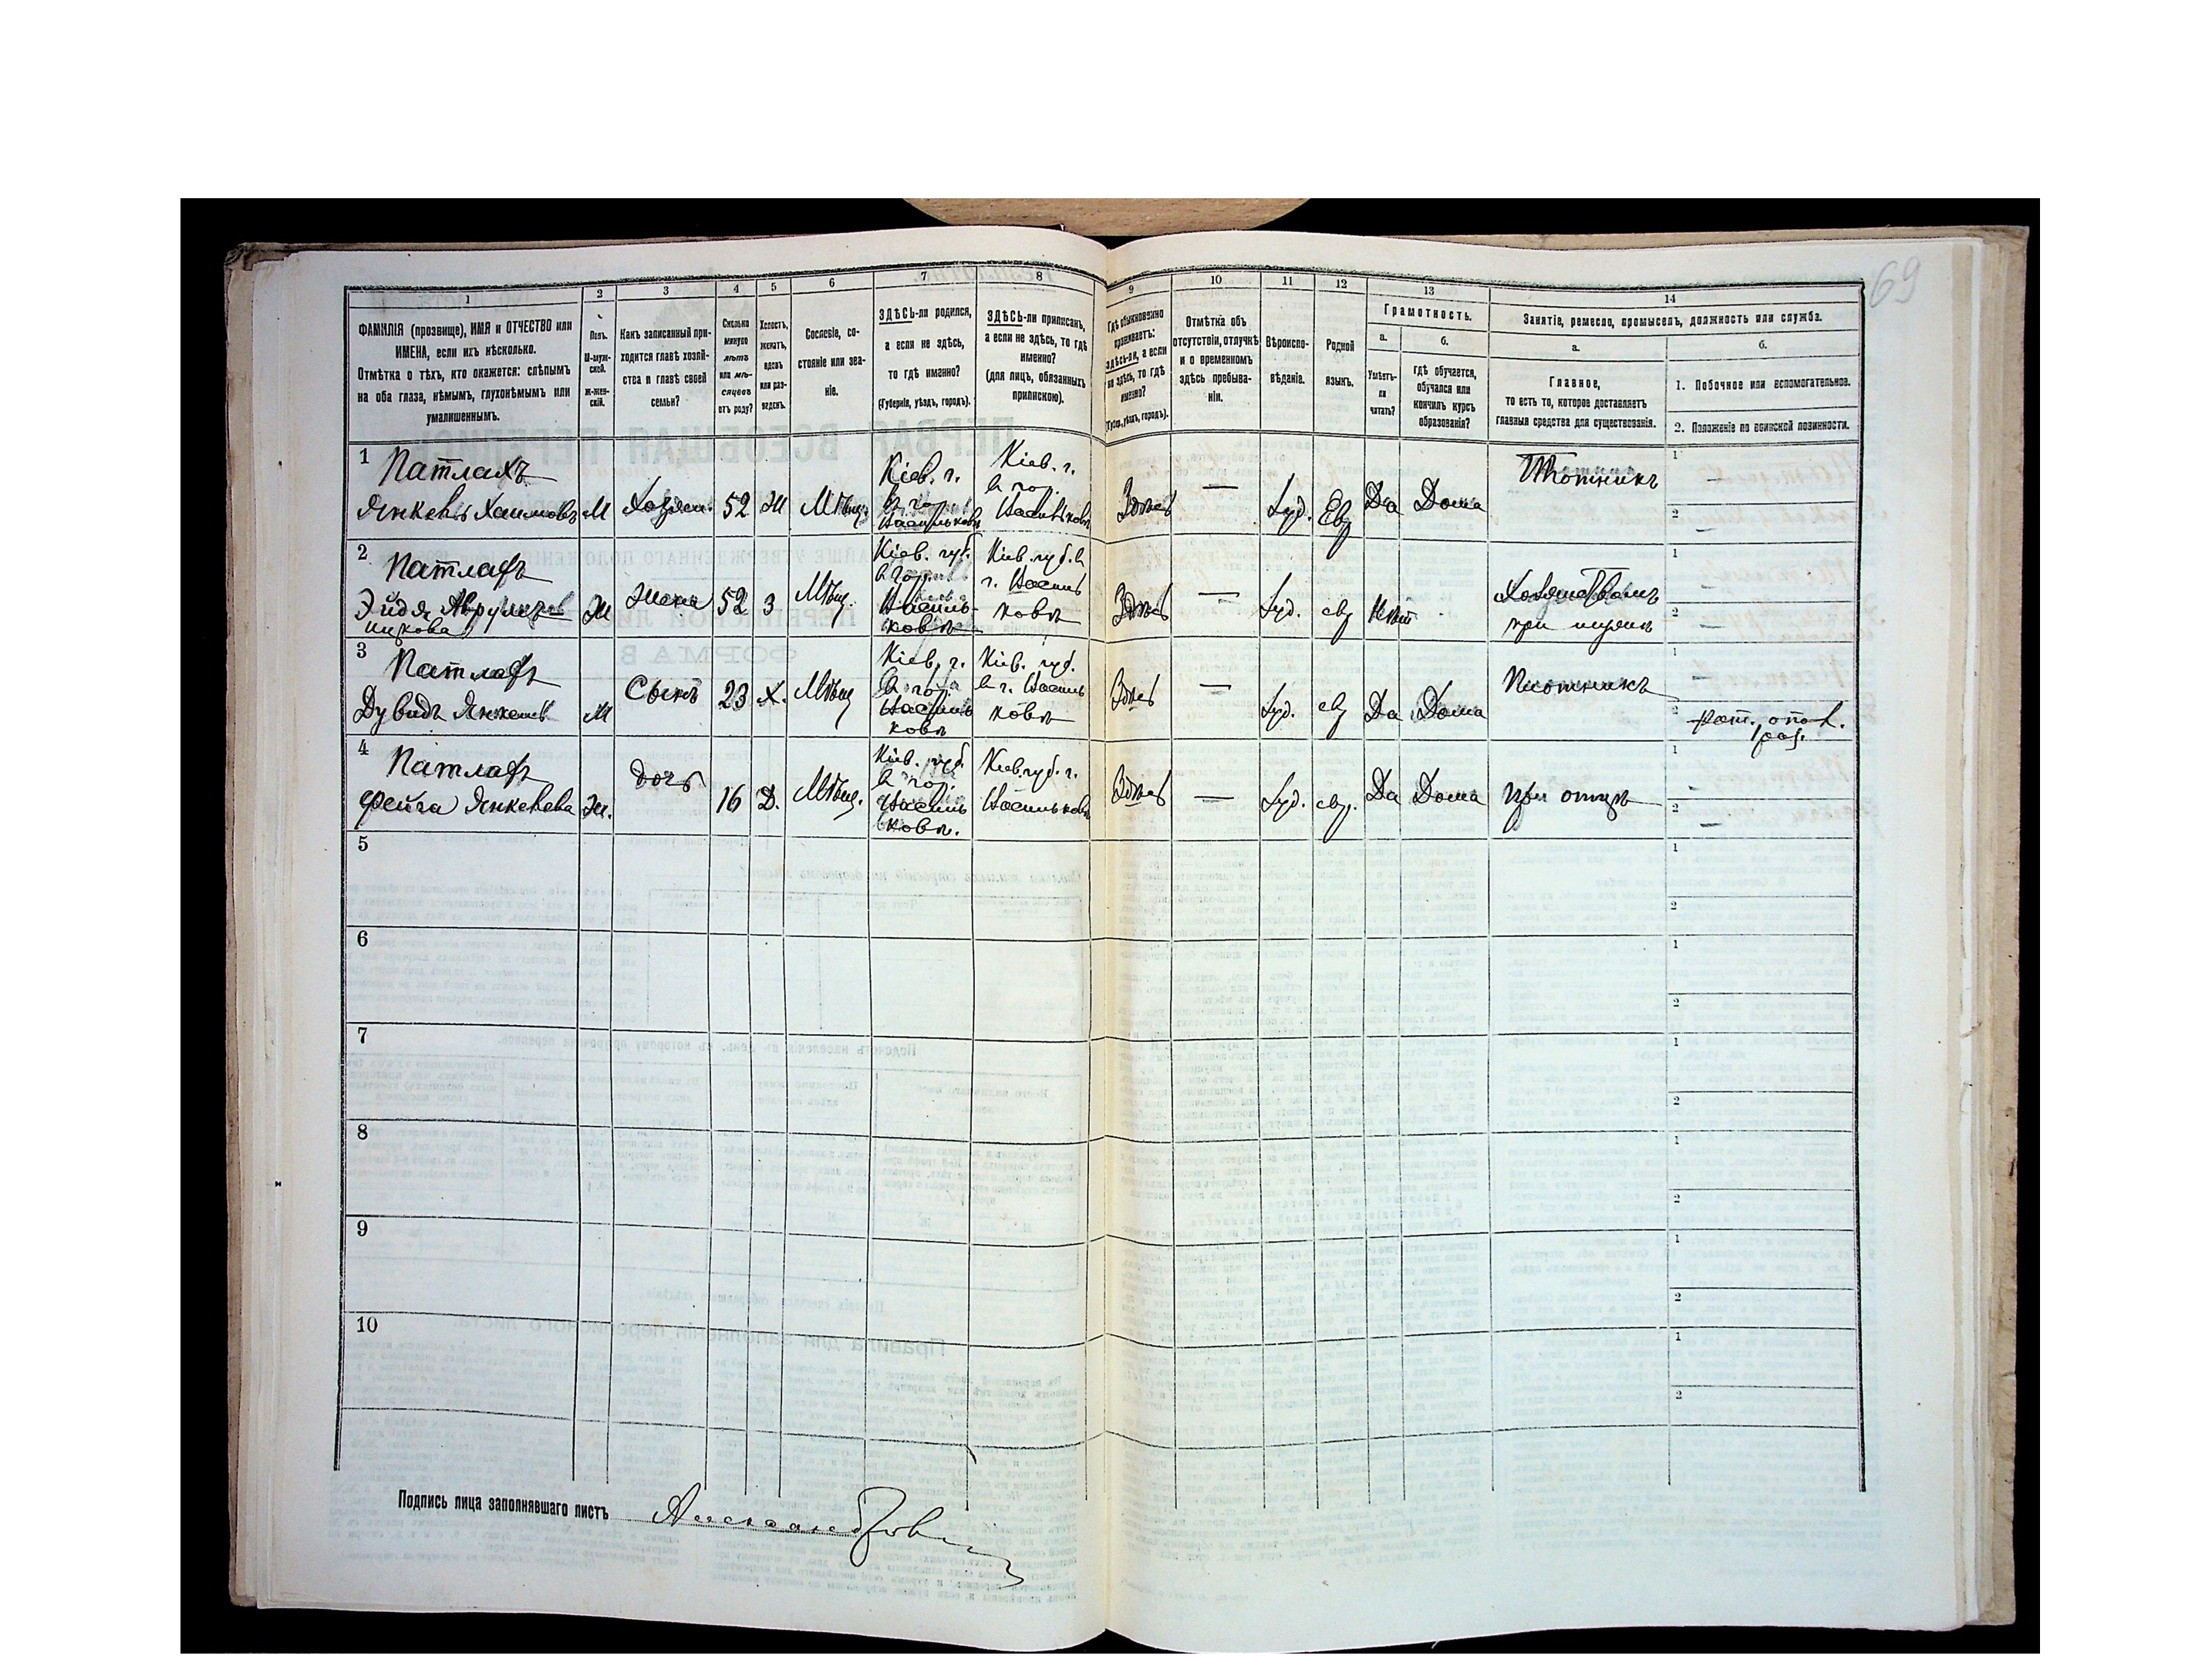 69
1
2
3
4
5
6
7
8
9
10
11
12
13
14
ФАМИЛІЯ (прозвище), ИМЯ и ОТЧЕСТВО или
ИМЕНА, если ихъ нѣсколько.
Отмѣтка о тѣхъ, кто окажется: слѣпымъ
на оба глаза, нѣмымъ, глухонѣмымъ или
умалишеннымъ.
Полъ.
М-муж-
ской.
Ж-жен-
скій.
Какъ записанный при-
ходится главѣ хозяй-
ства и главѣ своей
семьи?
Сколько
минуло
лѣтъ
или мѣ-
сяцевъ
отъ роду?
Холостъ,
женатъ,
вдовъ
или раз-
веденъ.
Сословіе, со-
стояніе или зва-
ніе.
ЗДѢСЬ-ли родился,
а если не здѣсь,
то гдѣ именно?
(Губернія, уѣздъ, городъ).
ЗДѢСЬ-ли приписанъ,
а если не здѣсь, то гдѣ
именно?
(для лицъ, обязанныхъ
припиской).
Гдѣ обыкновенно
проживаетъ:
здѣсь-ли, а если
не здѣсь, то гдѣ
именно?
(Губер., уѣздъ, городъ).
Отмѣтка объ
отсутствіи, отлучкѣ
и о временномъ
здѣсь пребыва-
ніи.
Вѣроиспо-
вѣданіе.
Родной
языкъ.
Грамотность.
а.
Умѣетъ-
ли
читать?
б.
гдѣ обучается,
обучался или
кончилъ курсъ
образованія?
Занятіе, ремесло, промыселъ, должность или служба.
а.
Главное,
то есть то, которое доставляетъ
главныя средства для существованія.
б.
1. Побочное или вспомогательное.
2. Положеніе по воинской повинности.
1 Патлахъ
Янкель Хаимовъ М Хозяин. 52 Ж Мѣщ.
Кіев. г.
в гор.
Васильковѣ
Кіев. г.
в гор.
Васильковѣ
Здѣсь — Іуд. Евр Да Дома Плотникъ
1 —
2 —
2 Патлахъ
М Ж Жена 52 З Мѣщ.
Кіев. губ.
в гор.
Василь-
ковѣ
Кіев. губ. в
г. Василь
ковѣ
Здѣсь — Іуд. евр Нѣтъ
Хозяйствомъ
при мужѣ
1 —
2 —
3 Патлахъ
Дувидъ Янкелев. М Сынъ 23 Х. Мѣщ
Кіев. г.
в гор.
Василь
ковѣ
Кіев. губ.
в г. Василь
ковѣ
Здѣсь — Іуд. евр Да Дома Плотникъ
1
2 рат. опол.
1 раз.
4 Патлахъ
Фейга Янкелева Ж. Дочь 16 Д. Мѣщ.
Кіев. губ.
в гор.
Василь
ковѣ.
Кіев. губ. г.
Васильковѣ
Здѣсь — Іуд. евр. Да Дома При отцѣ
1 —
2 —
5
1
2
6
1
2
7
1
2
8
1
2
9
1
2
10
1
2
Подпись лица заполнявшаго листъ